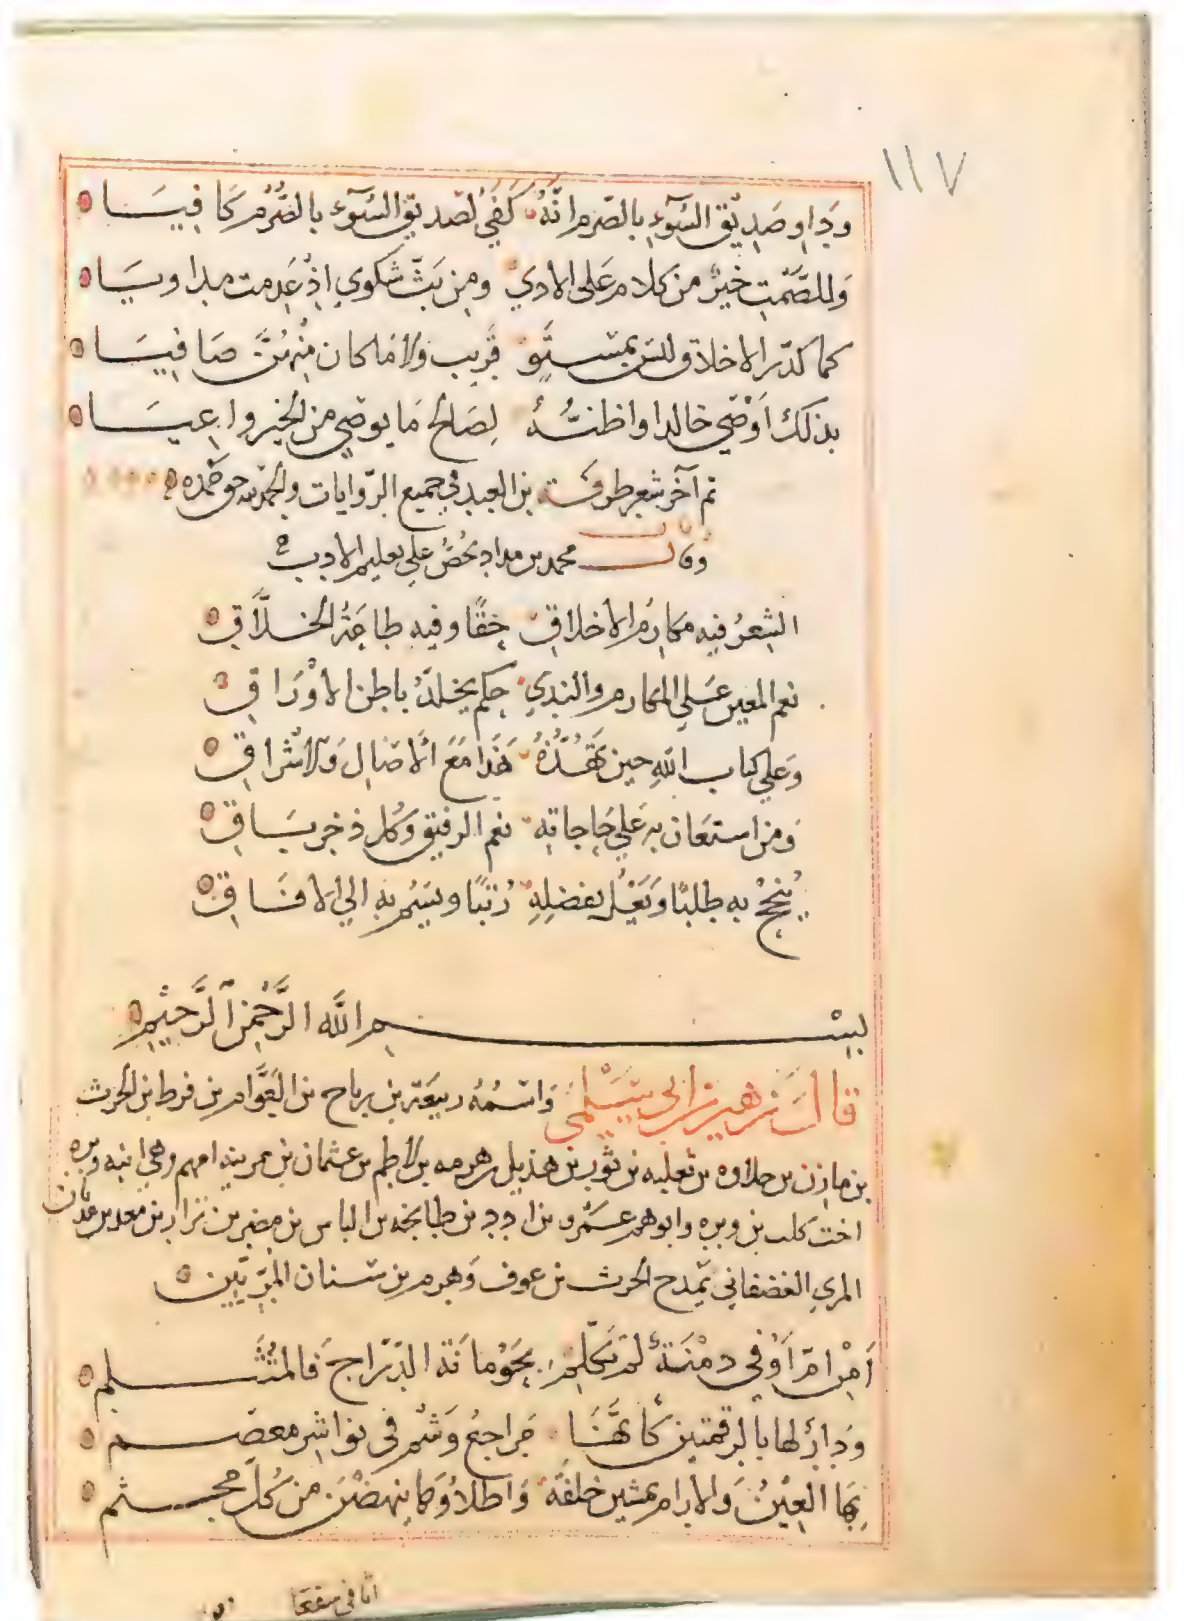 ١١٧
وداو صديق السوء بالصرم انه كفى لصديق السوء بالصرم كافيا
وللصمت خير من كلام على الاذي ومن بث شكوي اذ عدمت مداويا
كما كدر الاخلاق وليس بمستو قريب ولا ما كان منهن صافيا
بذلك اوصي خالدا واظنه لصالح ما يوصي من الخير واعيا
تم آخر شعر طرفة بن العبد في جميع الروايات والحمد لله حق حمده
وقال محمد بن مداد يحض علي تعليم الادب
الشعر فيه مكارم الاخلاق حقا وفيه طاعة الخلاق
نعم المعين على المكارم والندي حكم يخلد باطن الاوراق
وعلي كتاب الله حين تهذه هذا مع الاصال والاشراق
ومن استعان به علي حاجاته نعم الرفيق وكل ذخر باق
ينجح به طلبا ويعل بفضله رتبا ويسم به الي الافاق
بسم الله الرحمن الرحيم
قال زهير بن ابي سلمي واسمه ربيعة بن رياح بن العوام بن قرط بن الحرث
بن مازن بن حلاوه بن ثعلبه بن ثور بن هذيل بن هرمه بن لاطم بن عثمان بن مرينه امهم وهي ابنه وبره
اخت كلب بن وبره وابوهم عمرو بن ادد بن طابخه بن الياس بن مضر بن نزار بن معد بن عدنان
المري الغضفاني يمدح الحرث بن عوف وهرم بن سنان المريين
امن ام اوفي دمنة لم تكلم بحومانة الدراج فالمتثلم
ودار لها بالرقمتين كانها مراجع وشم في نواشر معصم
بها العين والارام يمشين خلفة واطلاوها ينهضن من كل مجثم
اثافي سفعا